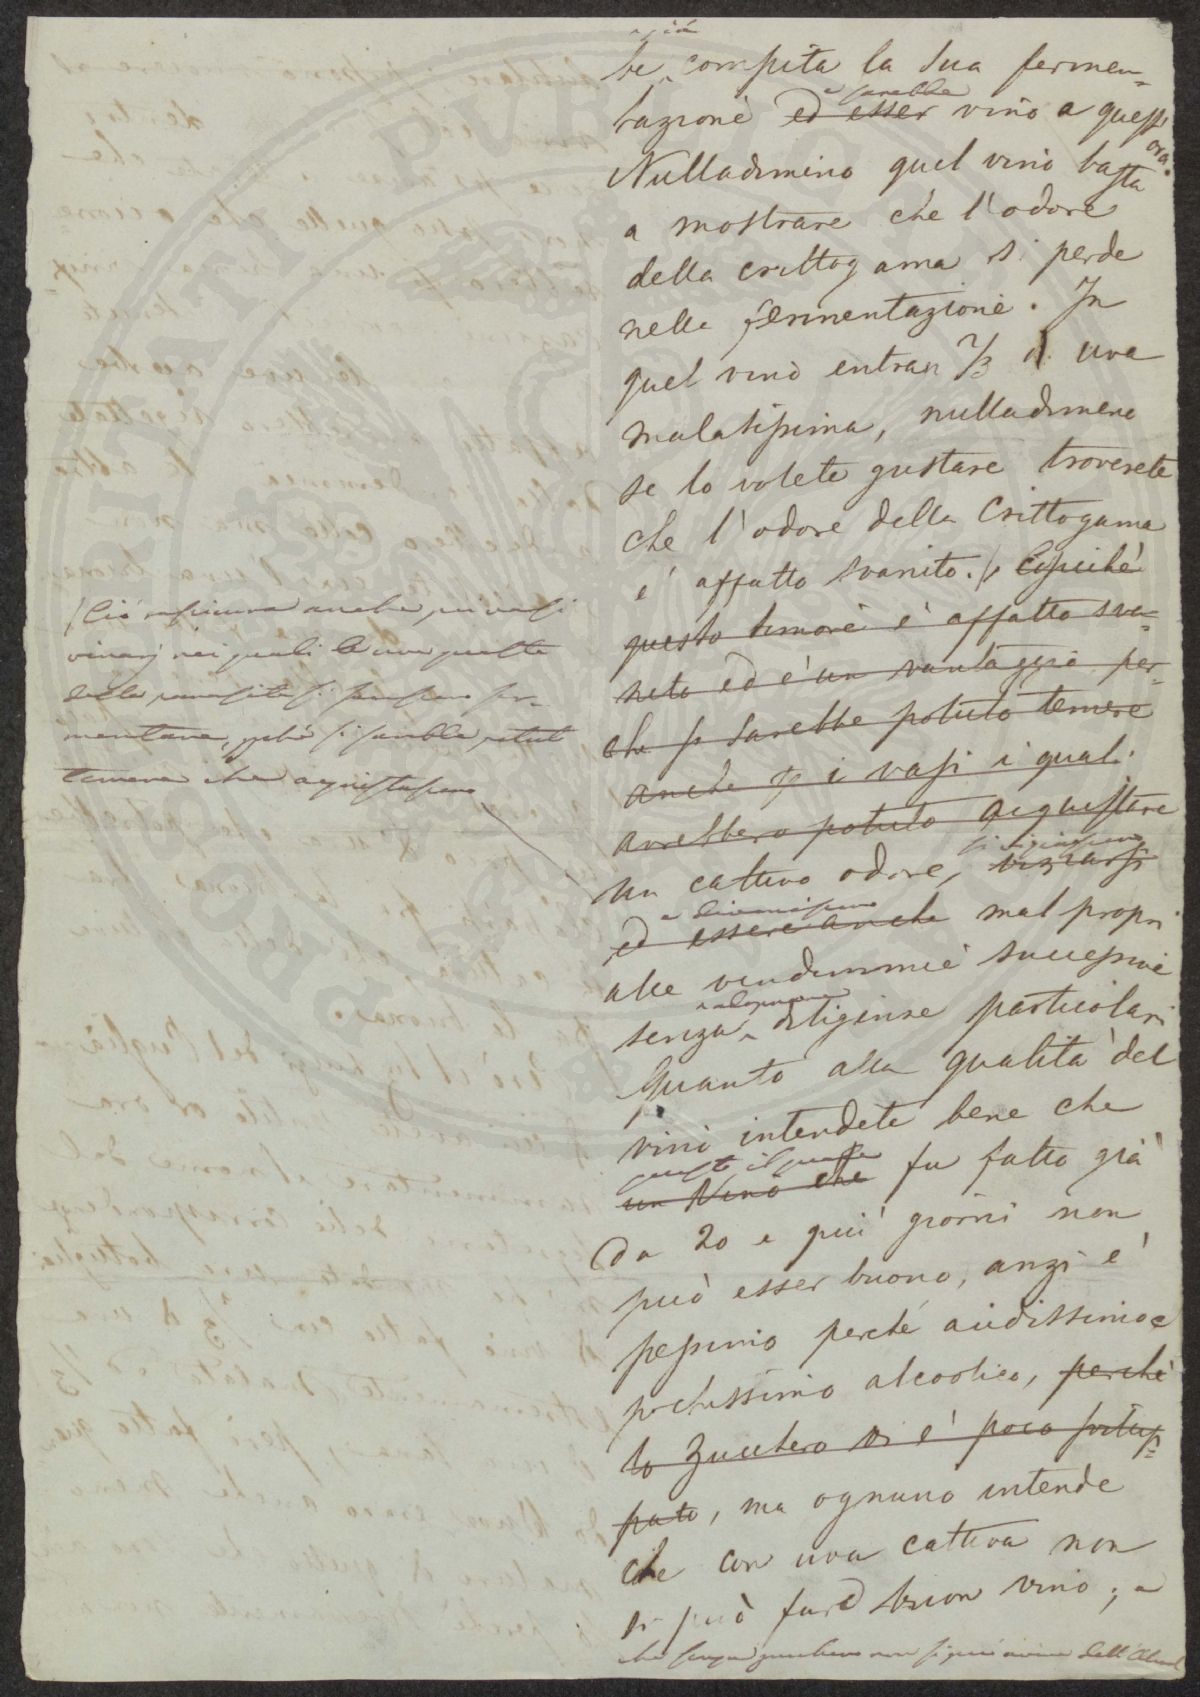 e già
be compita la sua fermen=
e sarebbe
tazione ed esser vino a quest'
ora.
Nulladimeno quel vino basta
a mostrare che l'odore
della crittogama si perde
nella fermentazione. In
quel vino entran 2/3 di uva
malatissima, nulladimeno
se lo volete gustare troverete
che l'odore della Crittogama
è affatto svanito. Cosicchè
questo timore è affatto sva=
nito ed è un vantaggio per=
che si sarebbe potuto temere
anche p i vasi i quali
avrebbero potuto acquistare
un cattivo odore, viziarsi
e divenissero
ed essere anche mal propri
alle vendemmie successive
senza diligenze particolari
Quanto alla qualità del
vino intendete bene che
questo il quale
un Vino che fu fatto già
da 20 e più giorni non
può esser buono, anzi è
pessimo perché acidissimo e
pochissimo alcoolico, perchè
lo Zucchero vi è poco svilup=
pato, ma ognuno intende
che con uva cattiva non
si può fare buon vino; e
che senza zucchero non si può avere dell'Alcool
(Ciò rassicura anche pei vasi
vinarj nei quali le uve guaste
dalla parassita si facessero fer=
mentare, poichè si sarebbe potuto
temere che acquistassero